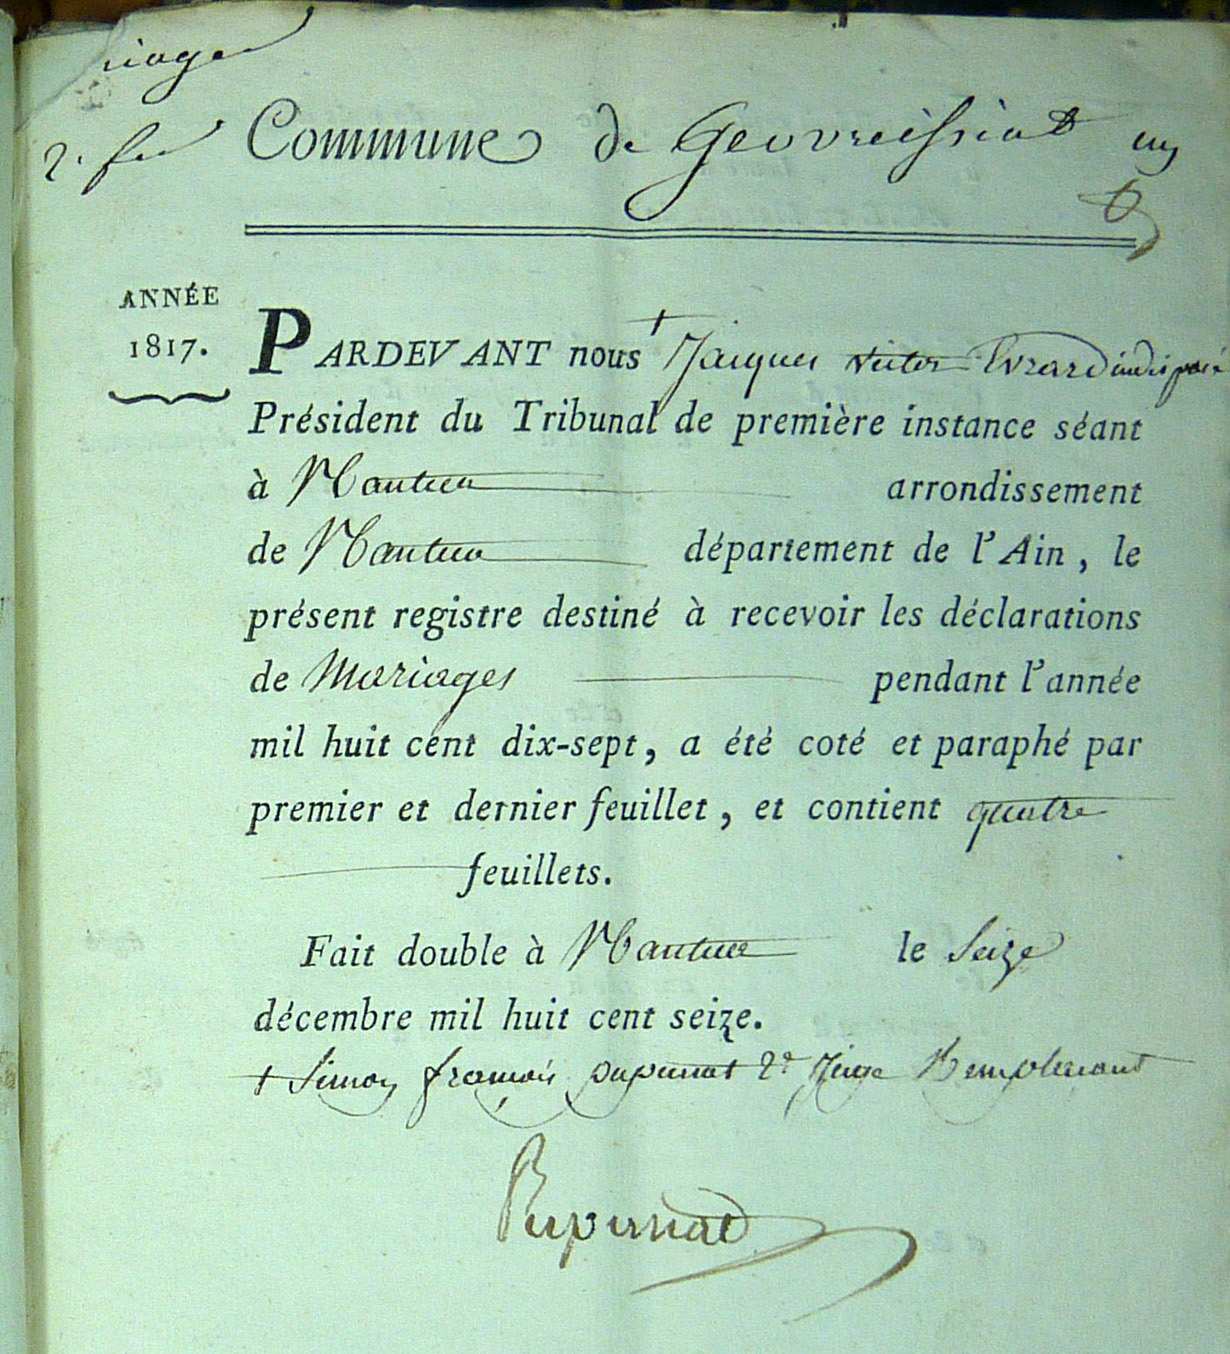 riage
2.
Commune de Geovreissiat un
ANNÉE
1817.
PARDEVANT nous + Jacques victor Evrard indisposé
Président du Tribunal de première instance séant
à Nantua arrondissement
de Nantua département de l'Ain, le
présent registre destiné à recevoir les déclarations
de Mariages pendant l'année
mil huit cent dix-sept, a été coté et paraphé par
premier et dernier feuillet, et contient quatre
feuillets.
Fait double à Nantua le Seize
décembre mil huit cent seize.
+ Simon françois pupunat 2e Juge Remplacant
Pupunat